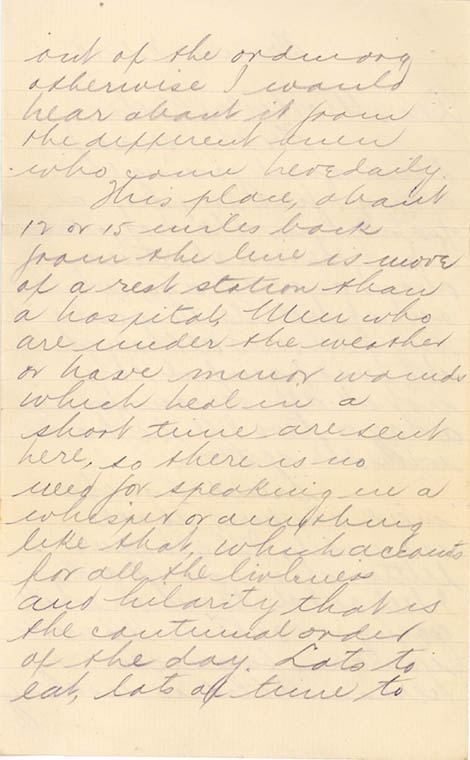 out of the ordinary
otherwise I would
hear about it from
the different men
who come here daily.
This place, about
12 or 15 miles back
from the line is more
of a rest station than
a hospital, Men who
are under the weather
or have minor wounds
which heal in a
short time are sent
here, so there is no
need for speaking in a
whisper or anything
like that, which accounts
for all the livliness
and hilarity that is
the continual order
of the day. Lots to
eat, lots of time to